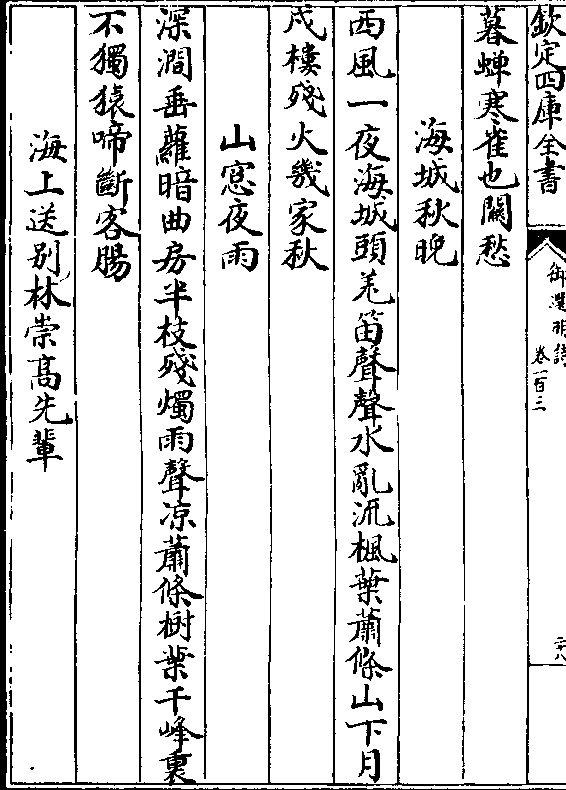 欽定四庫全書
御選明詩
卷一百三
二十八
暮蝉寒雀也關愁
海城秋晚
西風一夜海城頭羌笛聲聲水亂流楓葉蕭條山下月
戍樓殘火幾家秋
山窓夜雨
深澗垂蘿暗曲房半枝殘燭雨聲凉蕭條樹葉千峰裏
不獨猿啼斷客腸
海上送别林崇髙先輩